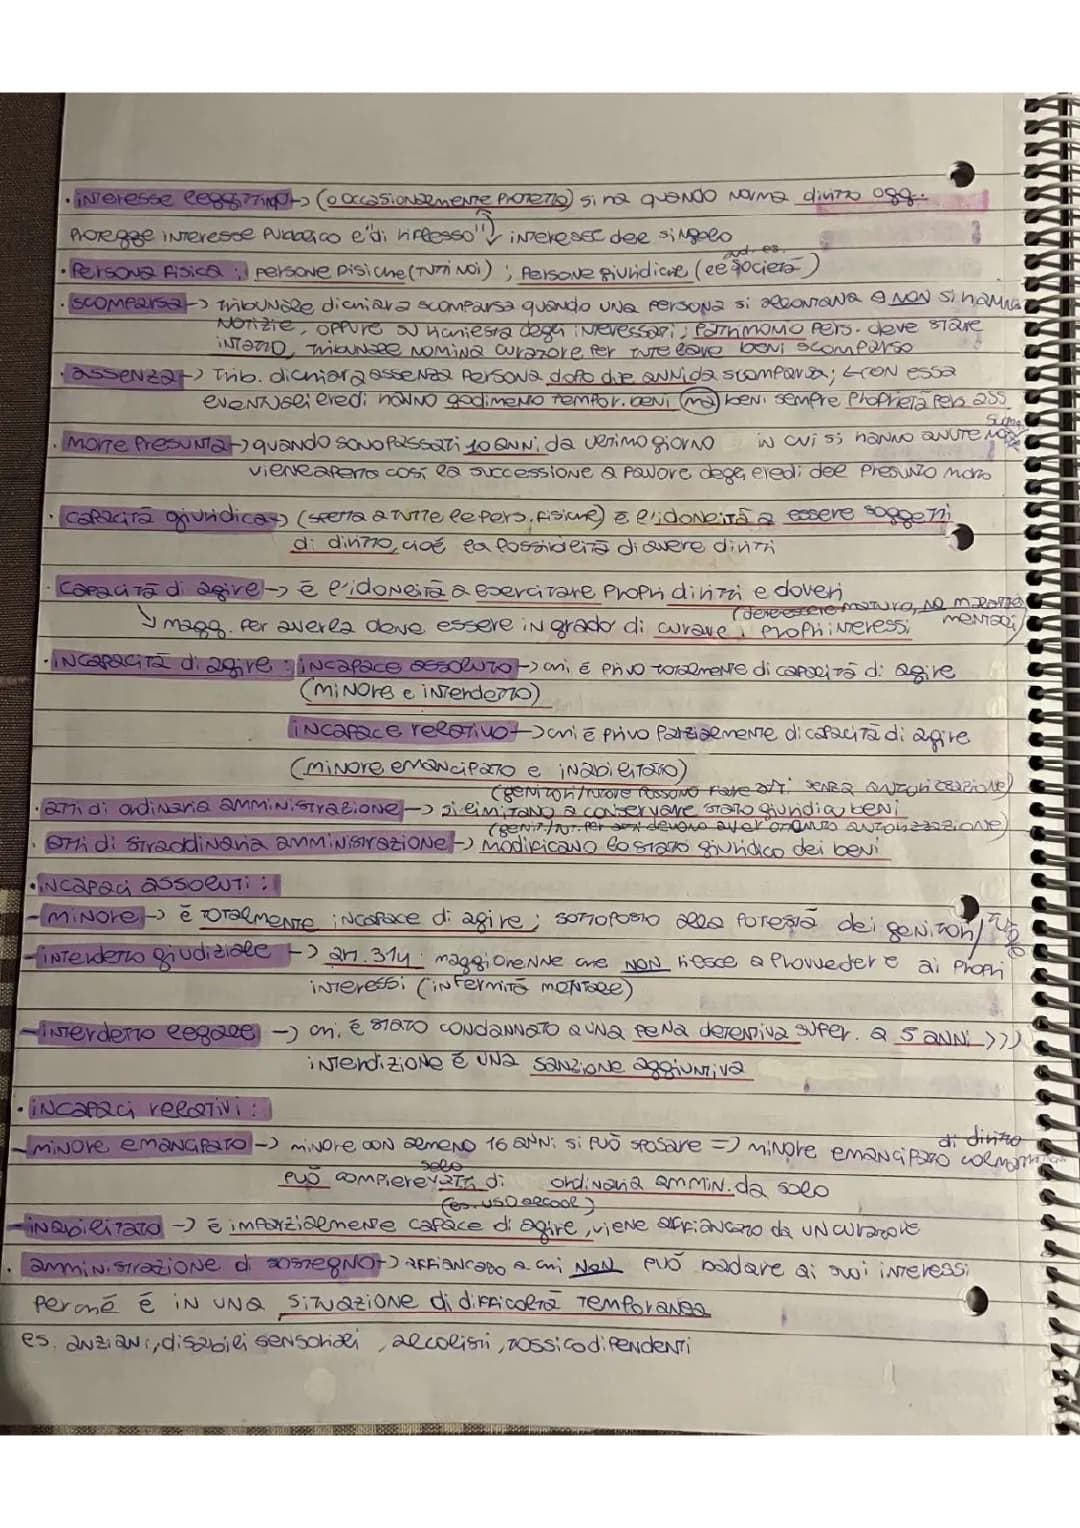 • interesse legittimo → (o occasionalmente protetto) si ha quando norma diritto ogg.
protegge interesse pubblico e "di riflesso" interesse del singolo
• Persona fisica : persone fisiche (tutti noi) ; persone giuridiche (ad es. le società)
• scomparsa → tribunale dichiara scomparsa quando una persona si allontana e non si hanno
notizie, oppure su richiesta degli interessati ; patrimonio pers. deve stare
intatto, tribunale nomina curatore per tutelare beni scomparso
• assenza → Trib. dichiara assenza persona dopo due anni da scomparsa; con essa
eventuali eredi hanno godimento tempor. beni (ma) beni sempre proprietà pers. ass
• morte presunta → quando sono passati 10 anni da ultimo giorno in cui si hanno avute
viene aperta così la successione a favore degli eredi del presunto morto
• capacità giuridica → (spetta a tutte le pers. fisiche) è l'idoneità a essere soggetti
di diritto, cioè la possibilità di avere diritti
• capacità di agire → è l'idoneità a esercitare propri diritti e doveri
(deve essere maturo, no malattie mentali)
magg. per averla deve essere in grado di curare i propri interessi
• incapacità di agire : incapace assoluto → chi è privo totalmente di capacità di agire
(minore e interdetto)
incapace relativo → chi è privo parzialmente di capacità di agire
(minore emancipato e inabilitato)
(genitori/tutore possono fare atti senza autorizzazione)
• atti di ordinaria amministrazione → si limitano a conservare stato giuridico beni
(genit./tut. per devono aver autorizzazione)
• atti di straordinaria amministrazione → modificano lo stato giuridico dei beni
• incapaci assoluti :
- minore → è totalmente incapace di agire ; sottoposto alla potestà dei genitori/
- interdetto giudiziale → art. 314 maggiorenne che non riesce a provvedere ai propri
interessi (infermità mentale)
- interdetto legale → chi è stato condannato a una pena detentiva super. a 5 anni >>>
interdizione è una sanzione aggiuntiva
• incapaci relativi :
- minore emancipato → minore con almeno 16 anni si può sposare => minore emancipato di diritto col
può compiere solo atti di ordinaria ammin. da solo
(es. uso alcool)
- inabilitato → è imparzialmente capace di agire, viene affiancato da un curatore
• amministrazione di sostegno → affiancato a chi non può badare ai suoi interessi
perché è in una situazione di difficoltà temporanea
es. anziani, disabili sensoriali, alcolisti, tossicodipendenti